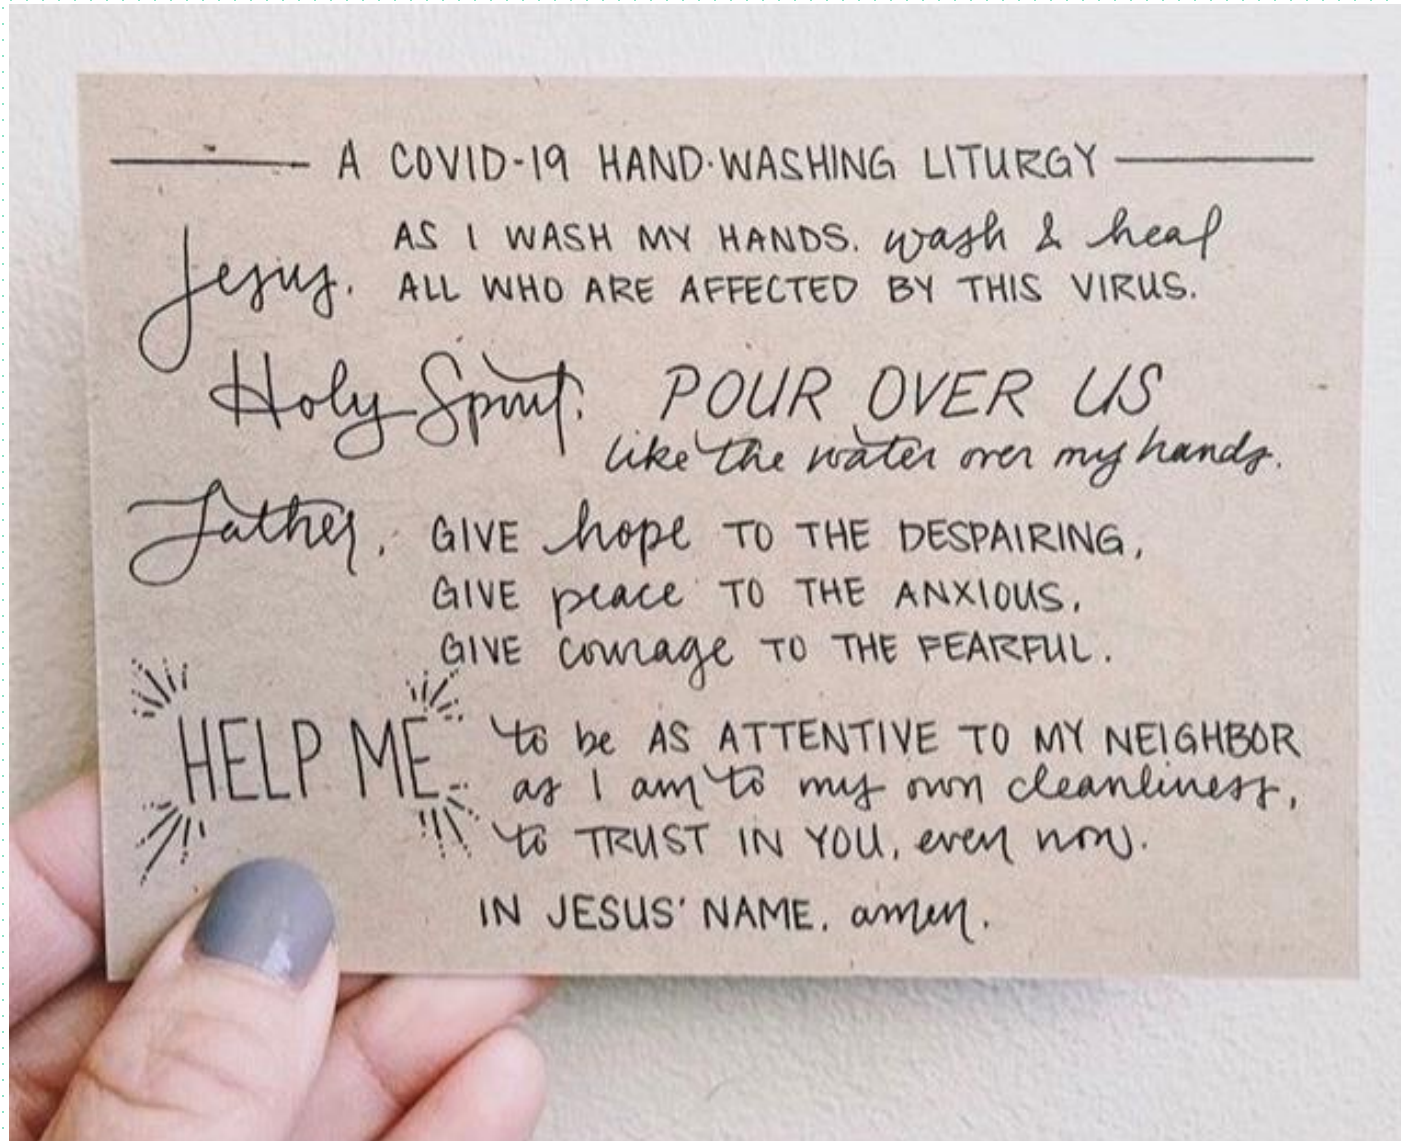 A COVID-19 HAND·WASHING LITURGY
Jesus, AS I WASH MY HANDS, wash & heal
ALL WHO ARE AFFECTED BY THIS VIRUS.
Holy Spirit, POUR OVER US
like the water over my hands.
Father, GIVE hope TO THE DESPAIRING,
GIVE peace TO THE ANXIOUS,
GIVE courage TO THE FEARFUL.
HELP ME to be AS ATTENTIVE TO MY NEIGHBOR
as I am to my own cleanliness,
to TRUST IN YOU, even now.
IN JESUS' NAME, amen.